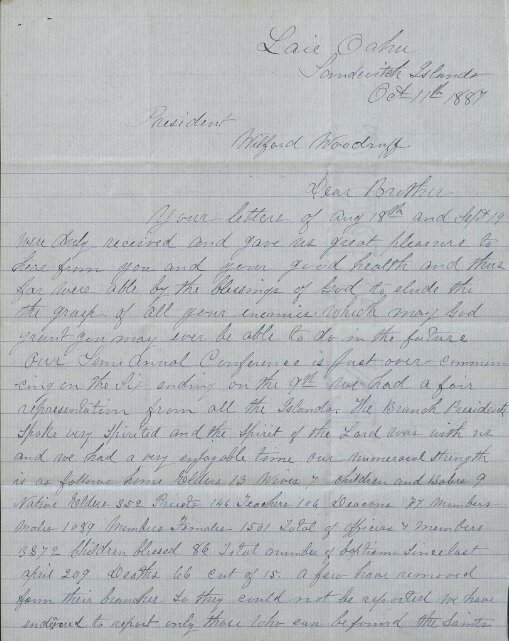 Laie Oahu
Sandwitch Islands
Oct 11th 1887
President
Wilford Woodruff
Dear Brother
Your letters of aug 18th and Sept 19
were duly received and gave us great pleasure to
here from you and your good health and thus
far were able by the blessings of God to elude the
the grasp of all your enemies which may God
grant you may ever be able to do in the future
Our Semi Annual Conference is just over commen-
-cing on the ending on the 9th we had a fair
representation from all the Islands. The Branch Presidents
Spoke very Spirited and the Spirit of the Lord was with us
and we had a very enjoyable time our numerical strength
is as follows Elders 13 Wives 7 children and Babies 9
Native Elders 352 Priests 146 Teachers 106 Deacons 77 Members
Males 1039 Members Females 1501 Total of officers & Members
3872 Children blessed 86 Total number of baptisms Since last
april 209 Deaths 66 cut of 15. a few have removed
from their branches So they could not be reported we have
to report only those who can be found the Saints